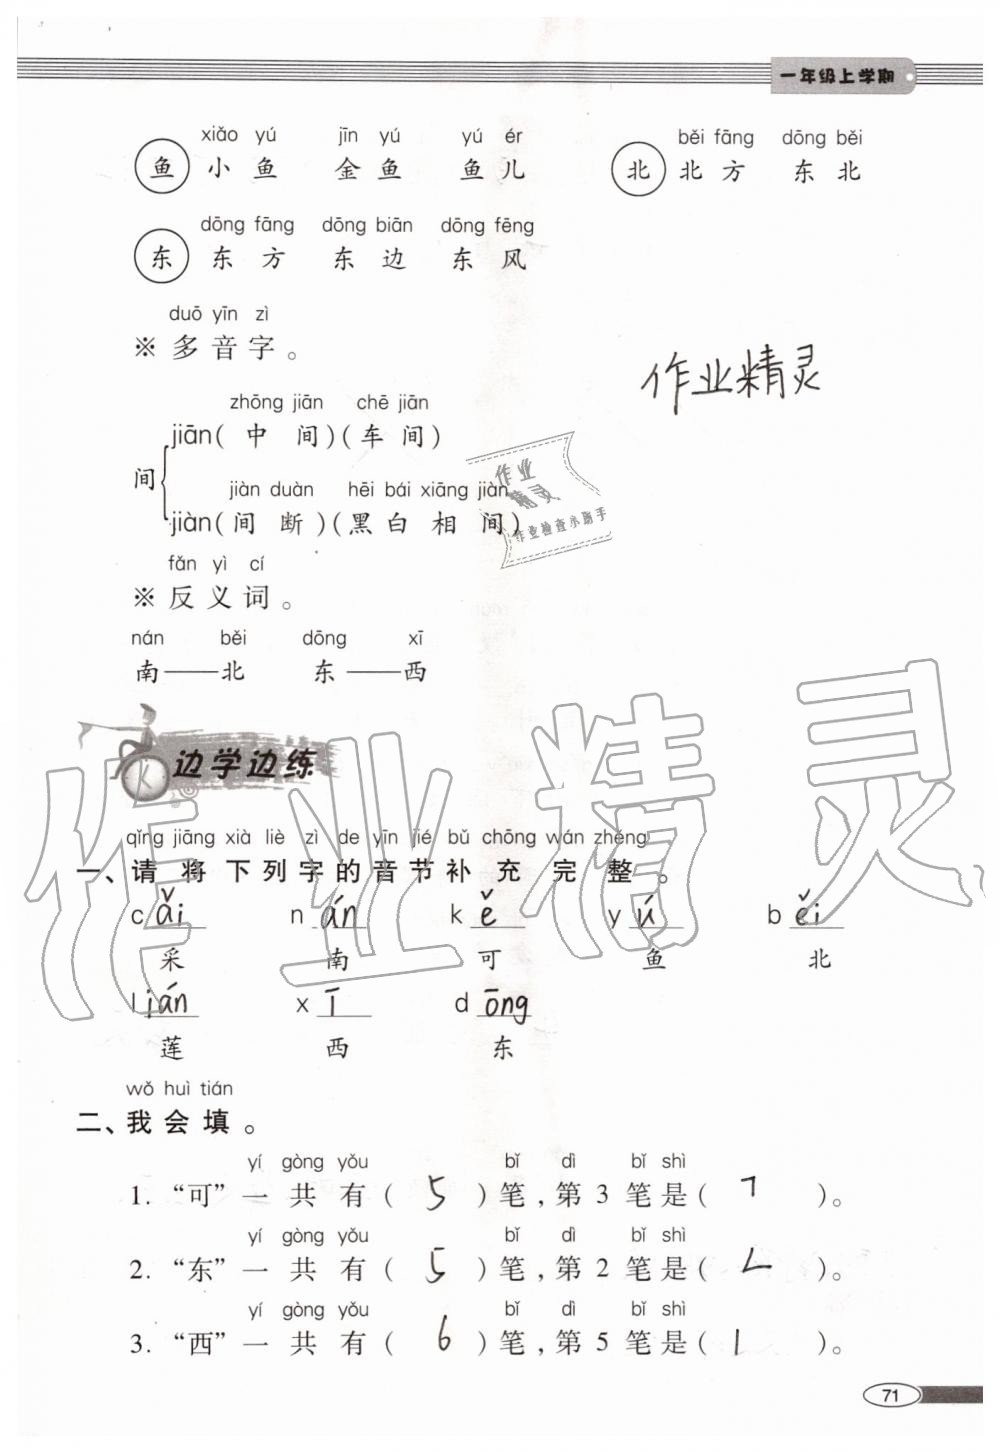 一年级上学期
xiǎo yú jīn yú yú ér běi fāng dōng běi
鱼 小鱼 金鱼 鱼儿 北 北方 东北
dōng fāng dōng biān dōng fēng
东 东方 东边 东风
duō yīn zì
※多音字。
作业精灵
zhōng jiān chē jiān
jiān(中间)(车间)
间
jiàn duàn hēi bái xiāng jiàn
jiàn(间断)(黑白相间)
作业
精灵
作业检查小助手
fǎn yì cí
※反义词。
nán běi dōng xī
南——北 东——西
边学边练
作业精灵
qǐng jiāng xià liè zì de yīn jié bǔ chōng wán zhěng
一、请将下列字的音节补充完整。
cǎi nán kě yú běi
采 南 可 鱼 北
lián xī dōng
莲 西 东
wǒ huì tián
二、我会填。
yí gòng yǒu bǐ dì bǐ shì
1.“可”一共有(5)笔,第3笔是(㇕)。
yí gòng yǒu bǐ dì bǐ shì
2.“东”一共有(5)笔,第2笔是(ㄥ)。
yí gòng yǒu bǐ dì bǐ shì
3.“西”一共有(6)笔,第5笔是(丨)。
71